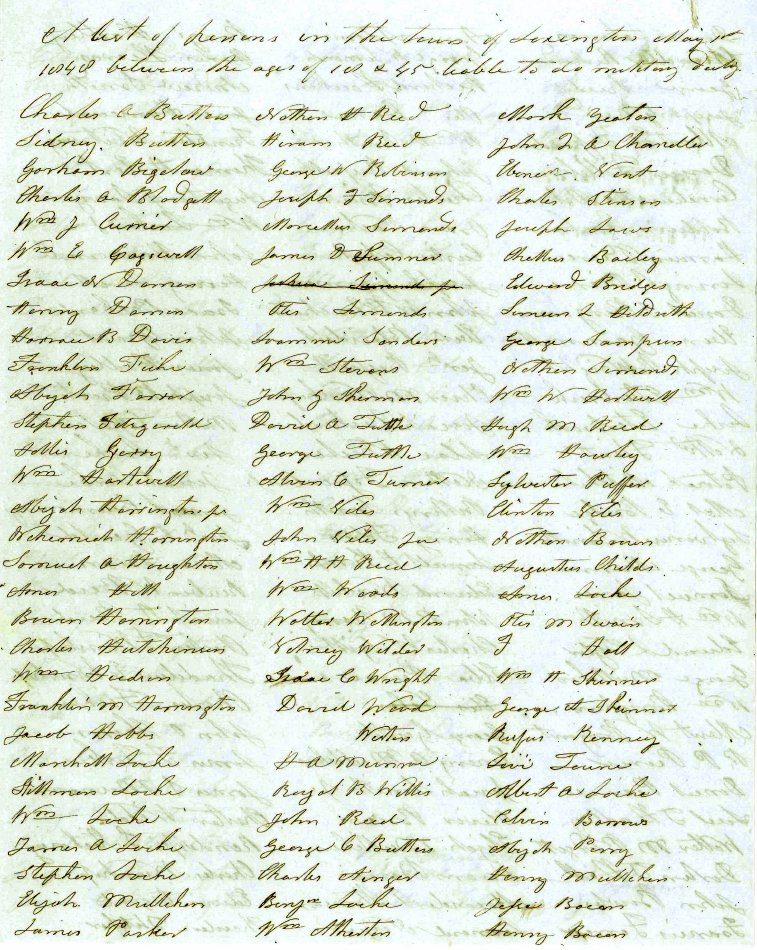 A list of persons in the town of Lexington May 1st
1848 between the ages of 18 & 45 liable to do military duty
Charles A Butters Nathan H Reed Mark Yeaton
Sidney Butters Hiram Reed John A Chandler
Gorham Bigelow George W Robinson Ebenr Dent
Charles A Blodgett Joseph F Simonds Charles Stinson
Wm J Currier Marcellus Simonds Joseph Laws
Wm E Cogswell James D Sumner Bailey
Isaac N Damon Joshua Simonds jr Edward Bridges
Henry Damon Otis Simonds L Hildreth
Horrace B Davis Sanders George Sampson
Franklin Fiske Wm Stevens Nathan Simonds
Abijah Farrar John G Sherman Wm W Hartwell
Stephen Fitzgerald David A Tuttle Hugh M Reed
Hollis Gerry George Tuttle Wm Hawley
Wm Hartwell Alvin C Turner Sylvester Puffer
Abijah Harrington jr Wm Viles Clinton Viles
Nehemiah Harrington John Viles Jr Nathan Brown
Samuel A Houghton Wm H H Reed Augustus Childs
Amos Hill Wm Woods Amos Locke
Bowen Harrington Walter Wellington Otis M Swain
Charles Hutchinson Volney Wilder J Hall
Wm Hudson Isaac C Wright Wm H Skinner
Franklin M Harrington David Wood George H Skinner
Jacob Hobbs Weston Rufus Kenney
Marshall Locke H A Munroe Levi Towne
Stillman Locke Royal B Willis Albert A Locke
Wm Locke John Reed Calvin Barrows
James A Locke George C Butters Abijah Perry
Stephen Locke Charles Ainger Henry Mulliken
Elijah Mulliken Benjn Locke Jesse Bacon
James Parker Wm Atherton Henry Bacon